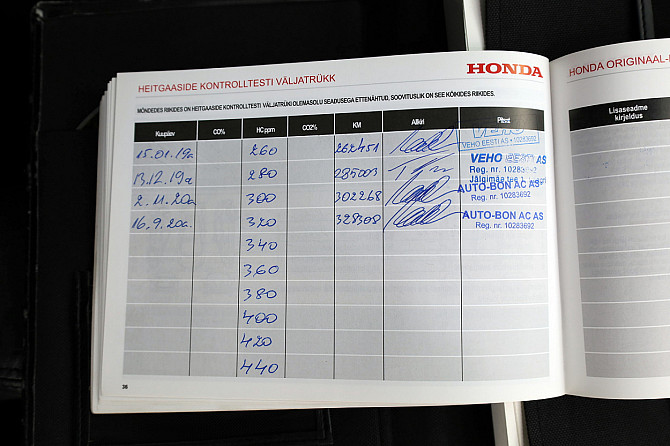 HEITGAASIDE KONTROLLTESTI VÄLJATRÜKK
HONDA
MÕNDEDES RIIKIDES ON HEITGAASIDE KONTROLLTESTI VÄLJATRÜKI OLEMASOLU SEADUSEGA ETTENÄHTUD, SOOVITUSLIK ON SEE KÕIKIDES RIIKIDES.
Kuupäev CO% HC ppm CO2% KM Allkiri Pitsat
VEHO EESTI AS • 10283692
15.01.19a 260 262451
VEHO EESTI AS
Reg. nr. 10283692
13.12.19a 280 285003
Jälgimäe tee 1
2.11.20a 300 302268
AUTO-BON AC AS
Reg. nr. 10283692
16.9.20a. 320 328308
AUTO-BON AC AS
Reg. nr. 10283692
340
360
380
400
420
440
36
HONDA ORIGINAAL-
Lisaseadme
kirjeldus